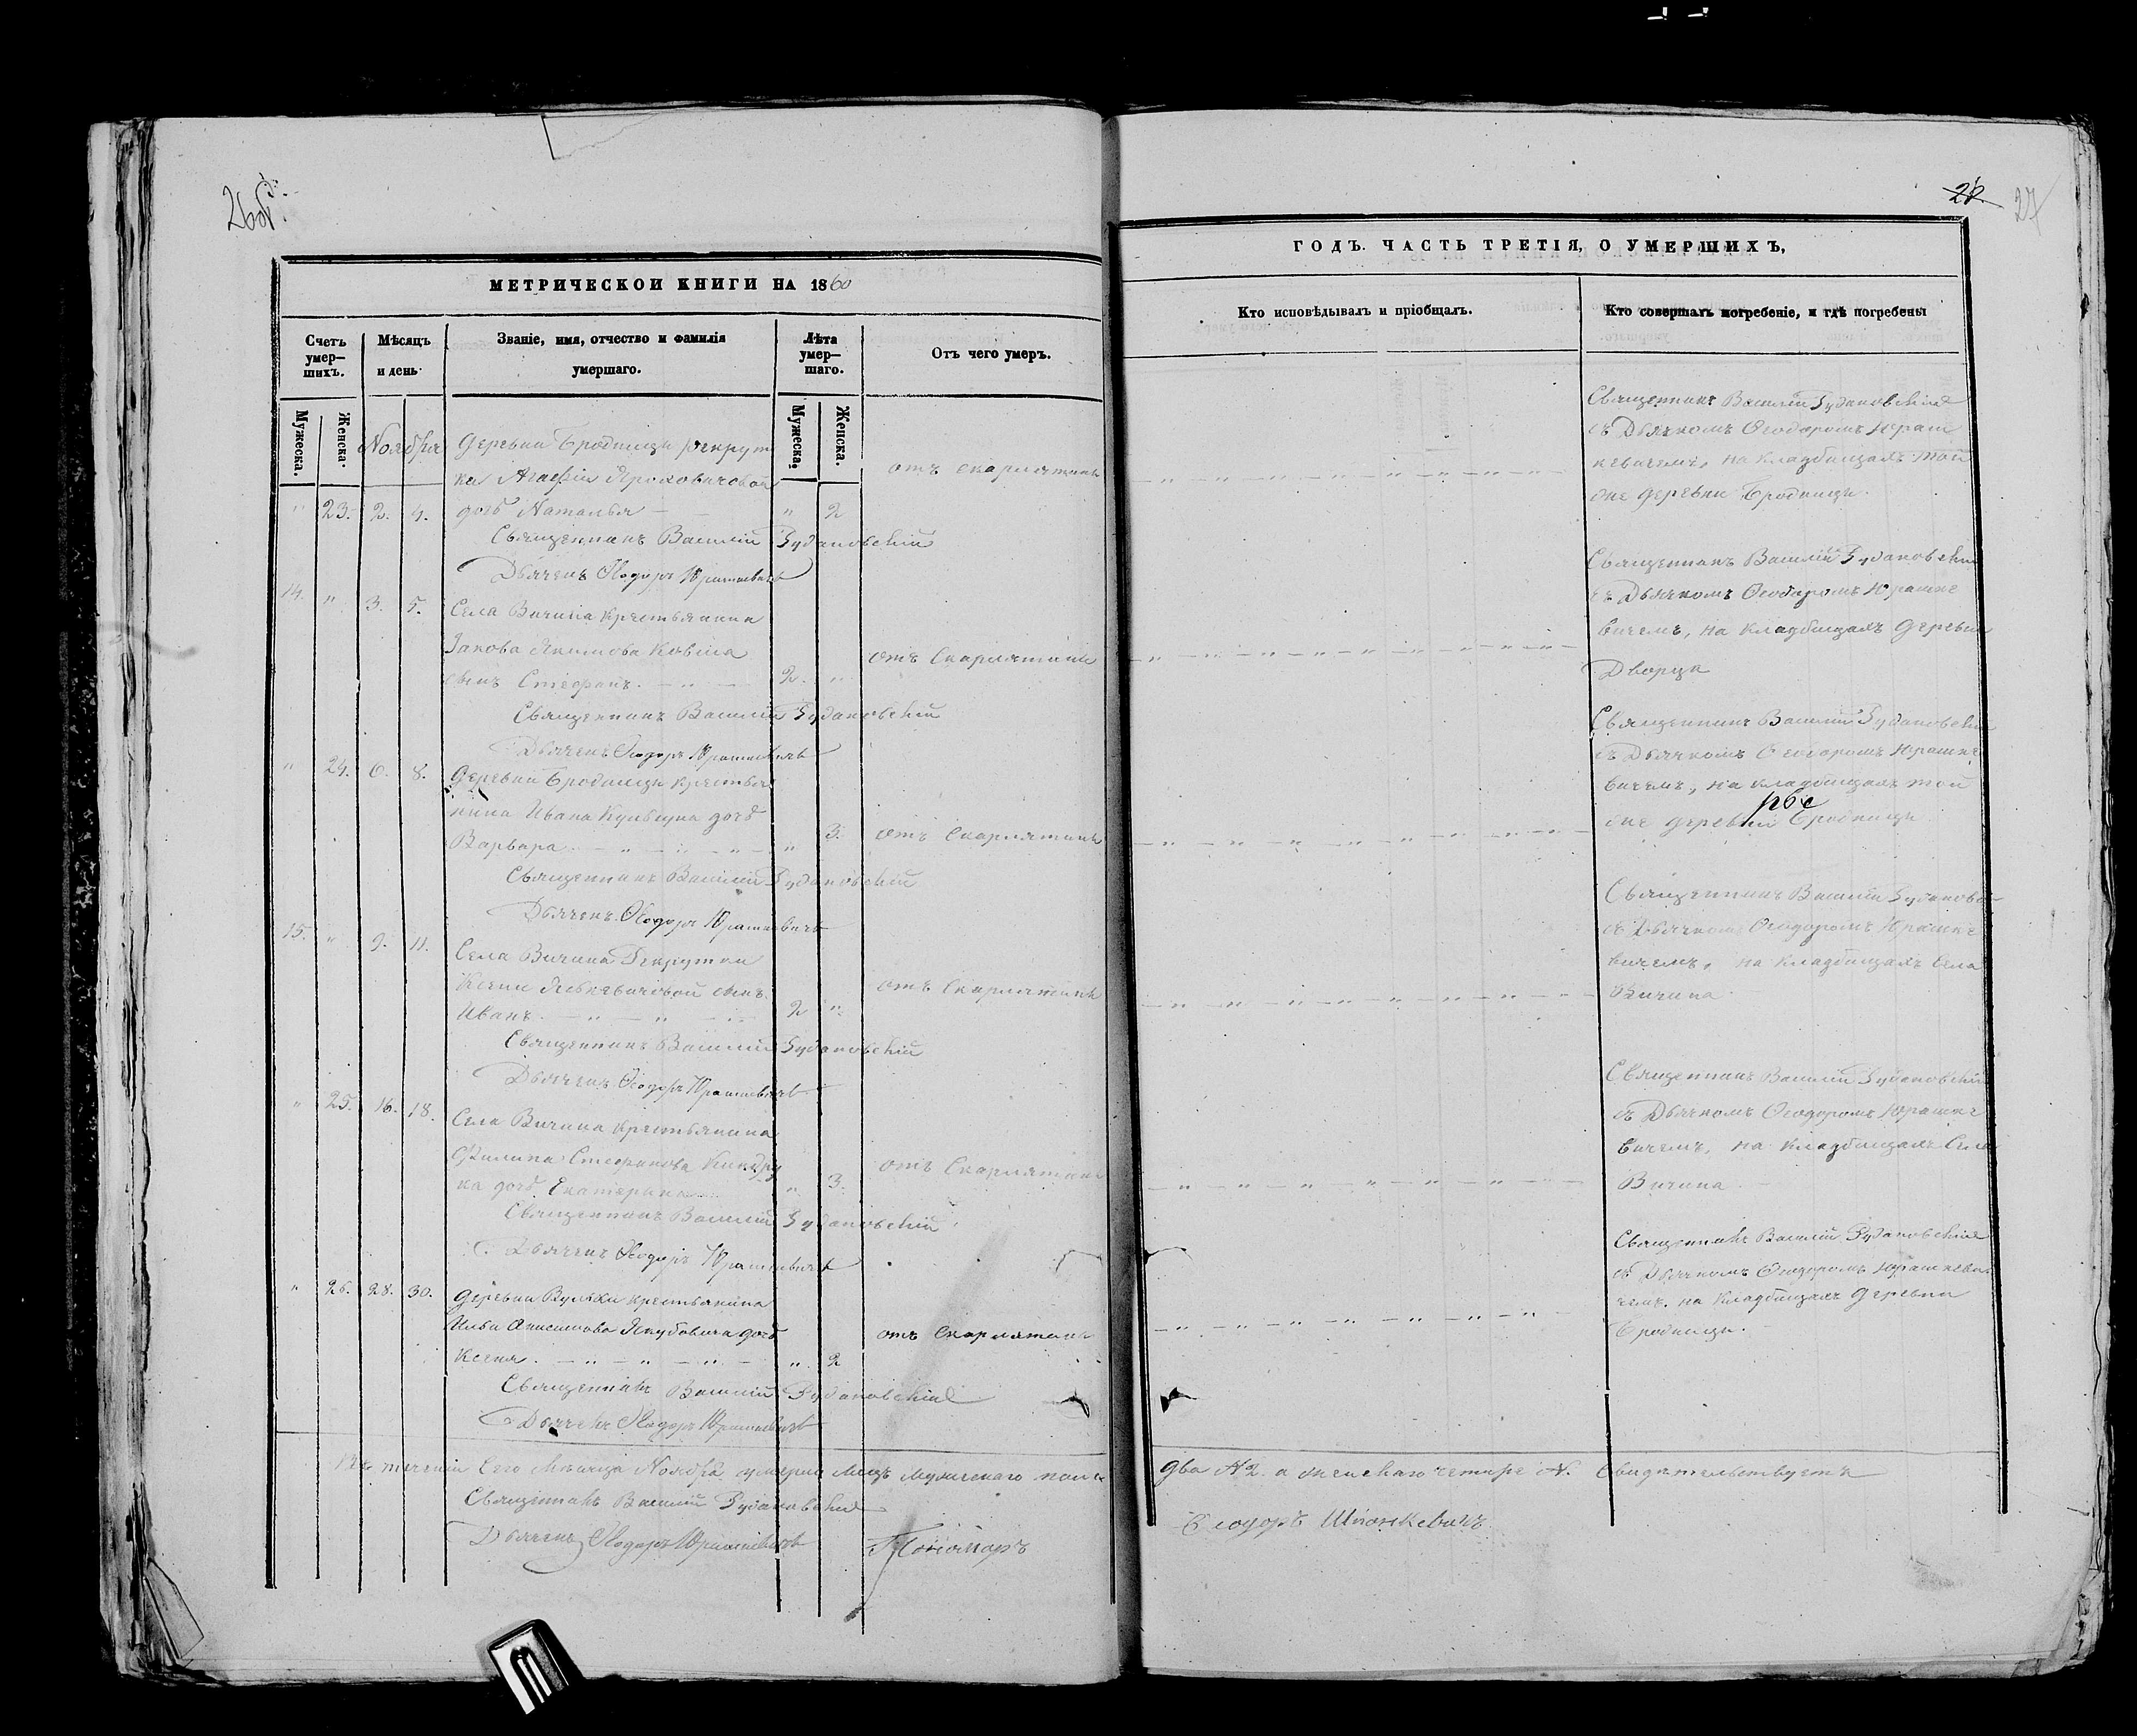 26об.
МЕТРИЧЕСКОЙ КНИГИ НА 1860
Счетъ умер–шихъ.
Мѣсяцъ и день.
Званіе, имя, отчество и фамилія умершаго.
Лѣта умер–шаго.
Отъ чего умеръ.
Мужеска.
Женска.
Мужеска.
Женска.
Ноября
Деревни Бродницы рекрут
ки Агафіи
дочь Наталья
" 23. 2. 4. " 2
отъ скарлятины
Священникъ Василій
Дьячекъ Ѳеодоръ Юрашкевичъ
14. " 3. 5.
Села Вичина крестьянина
Іакова Якимова Ковша
сынъ Стефанъ. 2. "
отъ Скарлятины
Священникъ Василій
Дьячекъ Ѳеодоръ Юрашкевичъ
" 24. 6. 8.
Деревни Бродницы крестья
нина Ивана дочь
Варвара " 3.
отъ Скарлятины
Священникъ Василій
Дьячекъ Ѳеодоръ Юрашкевичъ
15. " 9. 11.
Села Вичина Рекрутки
Ксеніи сынъ
Иванъ. 2 "
отъ Скарлятины
Священникъ Василій
Дьячекъ Ѳеодоръ Юрашкевичъ
" 25. 16. 18.
Села Вичина крестьянина
Филипа Стефанова
ка дочь Екатерина " 3.
отъ Скарлятины
Священникъ Василій
Дьячекъ Ѳеодоръ Юрашкевичъ
" 26. 28. 30.
Деревни Вульки крестьянина
Ильи Анисимова Якубовича дочь
Ксенія. " 2
отъ Скарлятины
Священникъ Василій
Дьячекъ Ѳеодоръ Юрашкевичъ
Въ теченіи Сего Мѣсяца Ноября умерло Лицъ мужескаго пола
Священникъ Василій
Дьячекъ Ѳеодоръ Юрашкевичъ
Пономарь
27
ГОДЪ. ЧАСТЬ ТРЕТІЯ, О УМЕРШИХЪ,
Кто исповѣдывалъ и пріобщалъ.
Кто совершалъ погребеніе, и гдѣ погребены
Священникъ Василій
съ Дьячкомъ Ѳеодоромъ Юраш
кевичемъ, на кладбищахъ той
же деревни Бродницы.
Священникъ Василій
съ Дьячкомъ Ѳеодоромъ Юрашке
вичемъ, на кладбищахъ деревни
Дворца
Священникъ Василій
съ Дьячкомъ Ѳеодоромъ Юрашке
вичемъ, на кладбищахъ той
же деревни Бродницы.
Священникъ Василій
съ Дьячкомъ Ѳеодоромъ Юрашке
вичемъ, на кладбищахъ Села
Вичина
Священникъ Василій
съ Дьячкомъ Ѳеодоромъ Юрашке
вичемъ, на кладбищахъ Села
Вичина
Священникъ Василій
съ Дьячкомъ Ѳеодоромъ Юрашкеви
чемъ, на кладбищахъ деревни
Бродницы.
два №2. а женскаго четыре №. Свидѣтельствуетъ
Ѳеодоръ